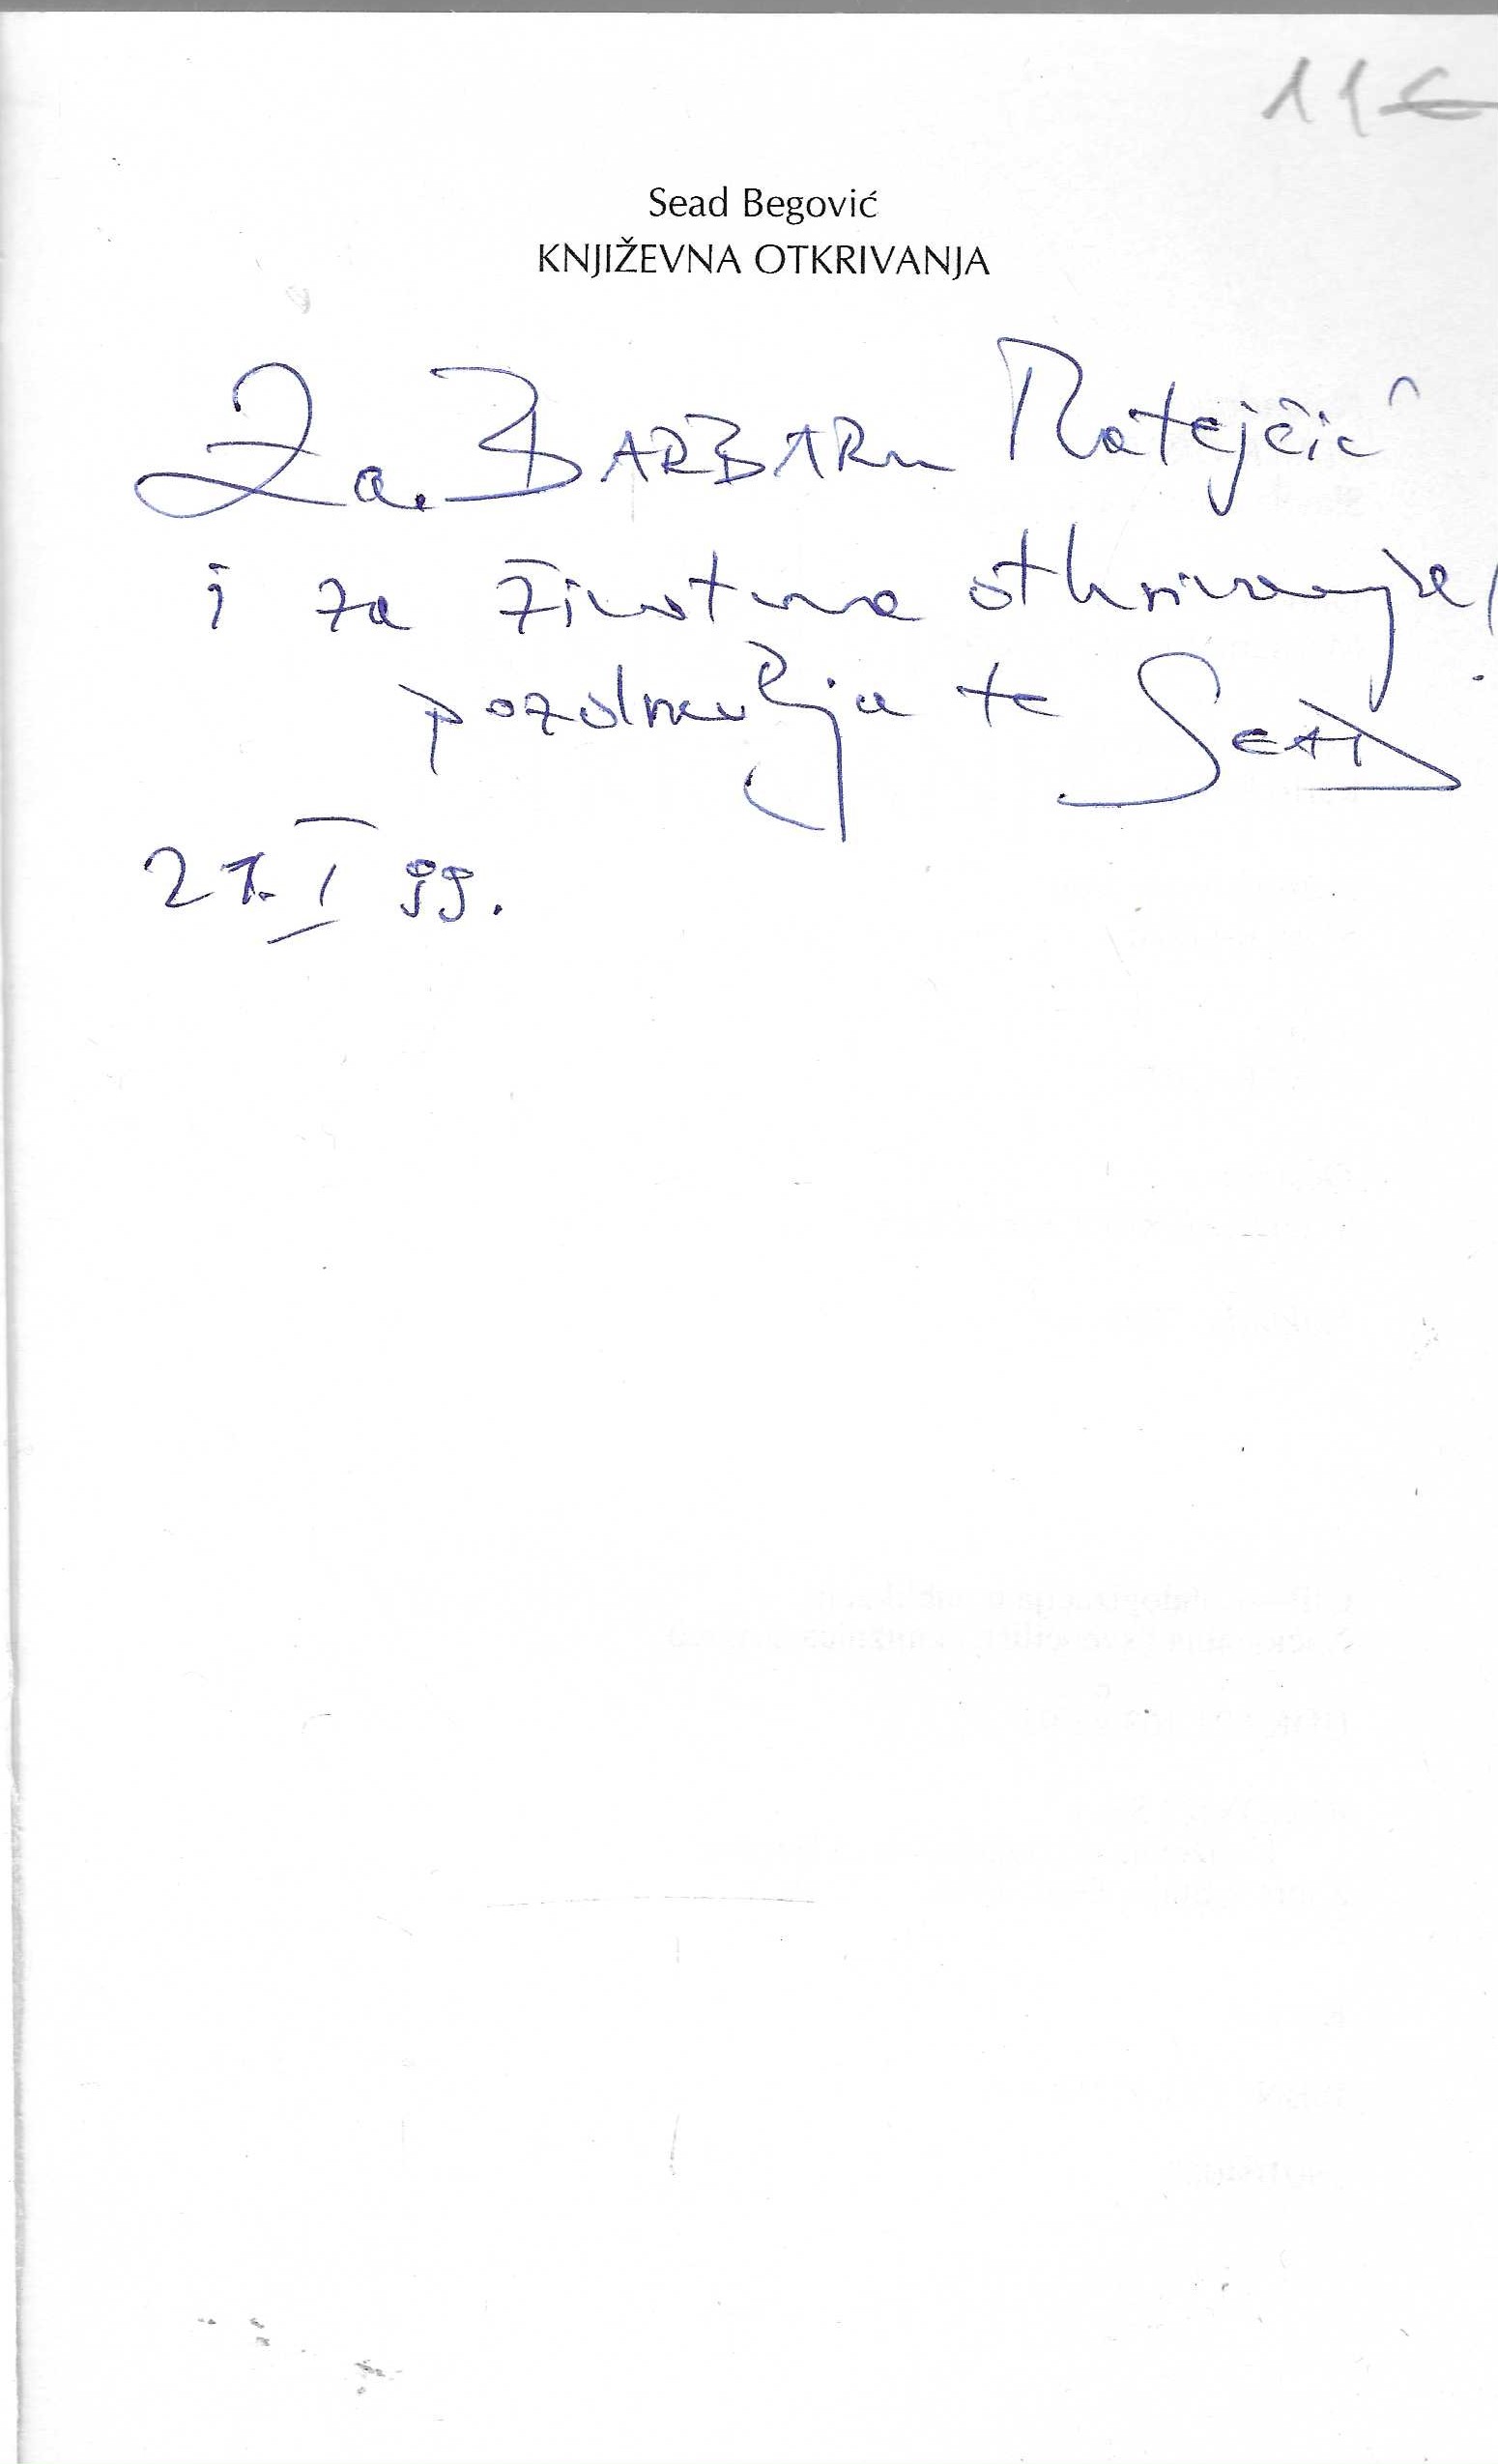 11€
Sead Begović
KNJIŽEVNA OTKRIVANJA
Za BARBARU Matejčić
i za životna otkrivanja,
pozdravlja te SEAD
27. I 99.